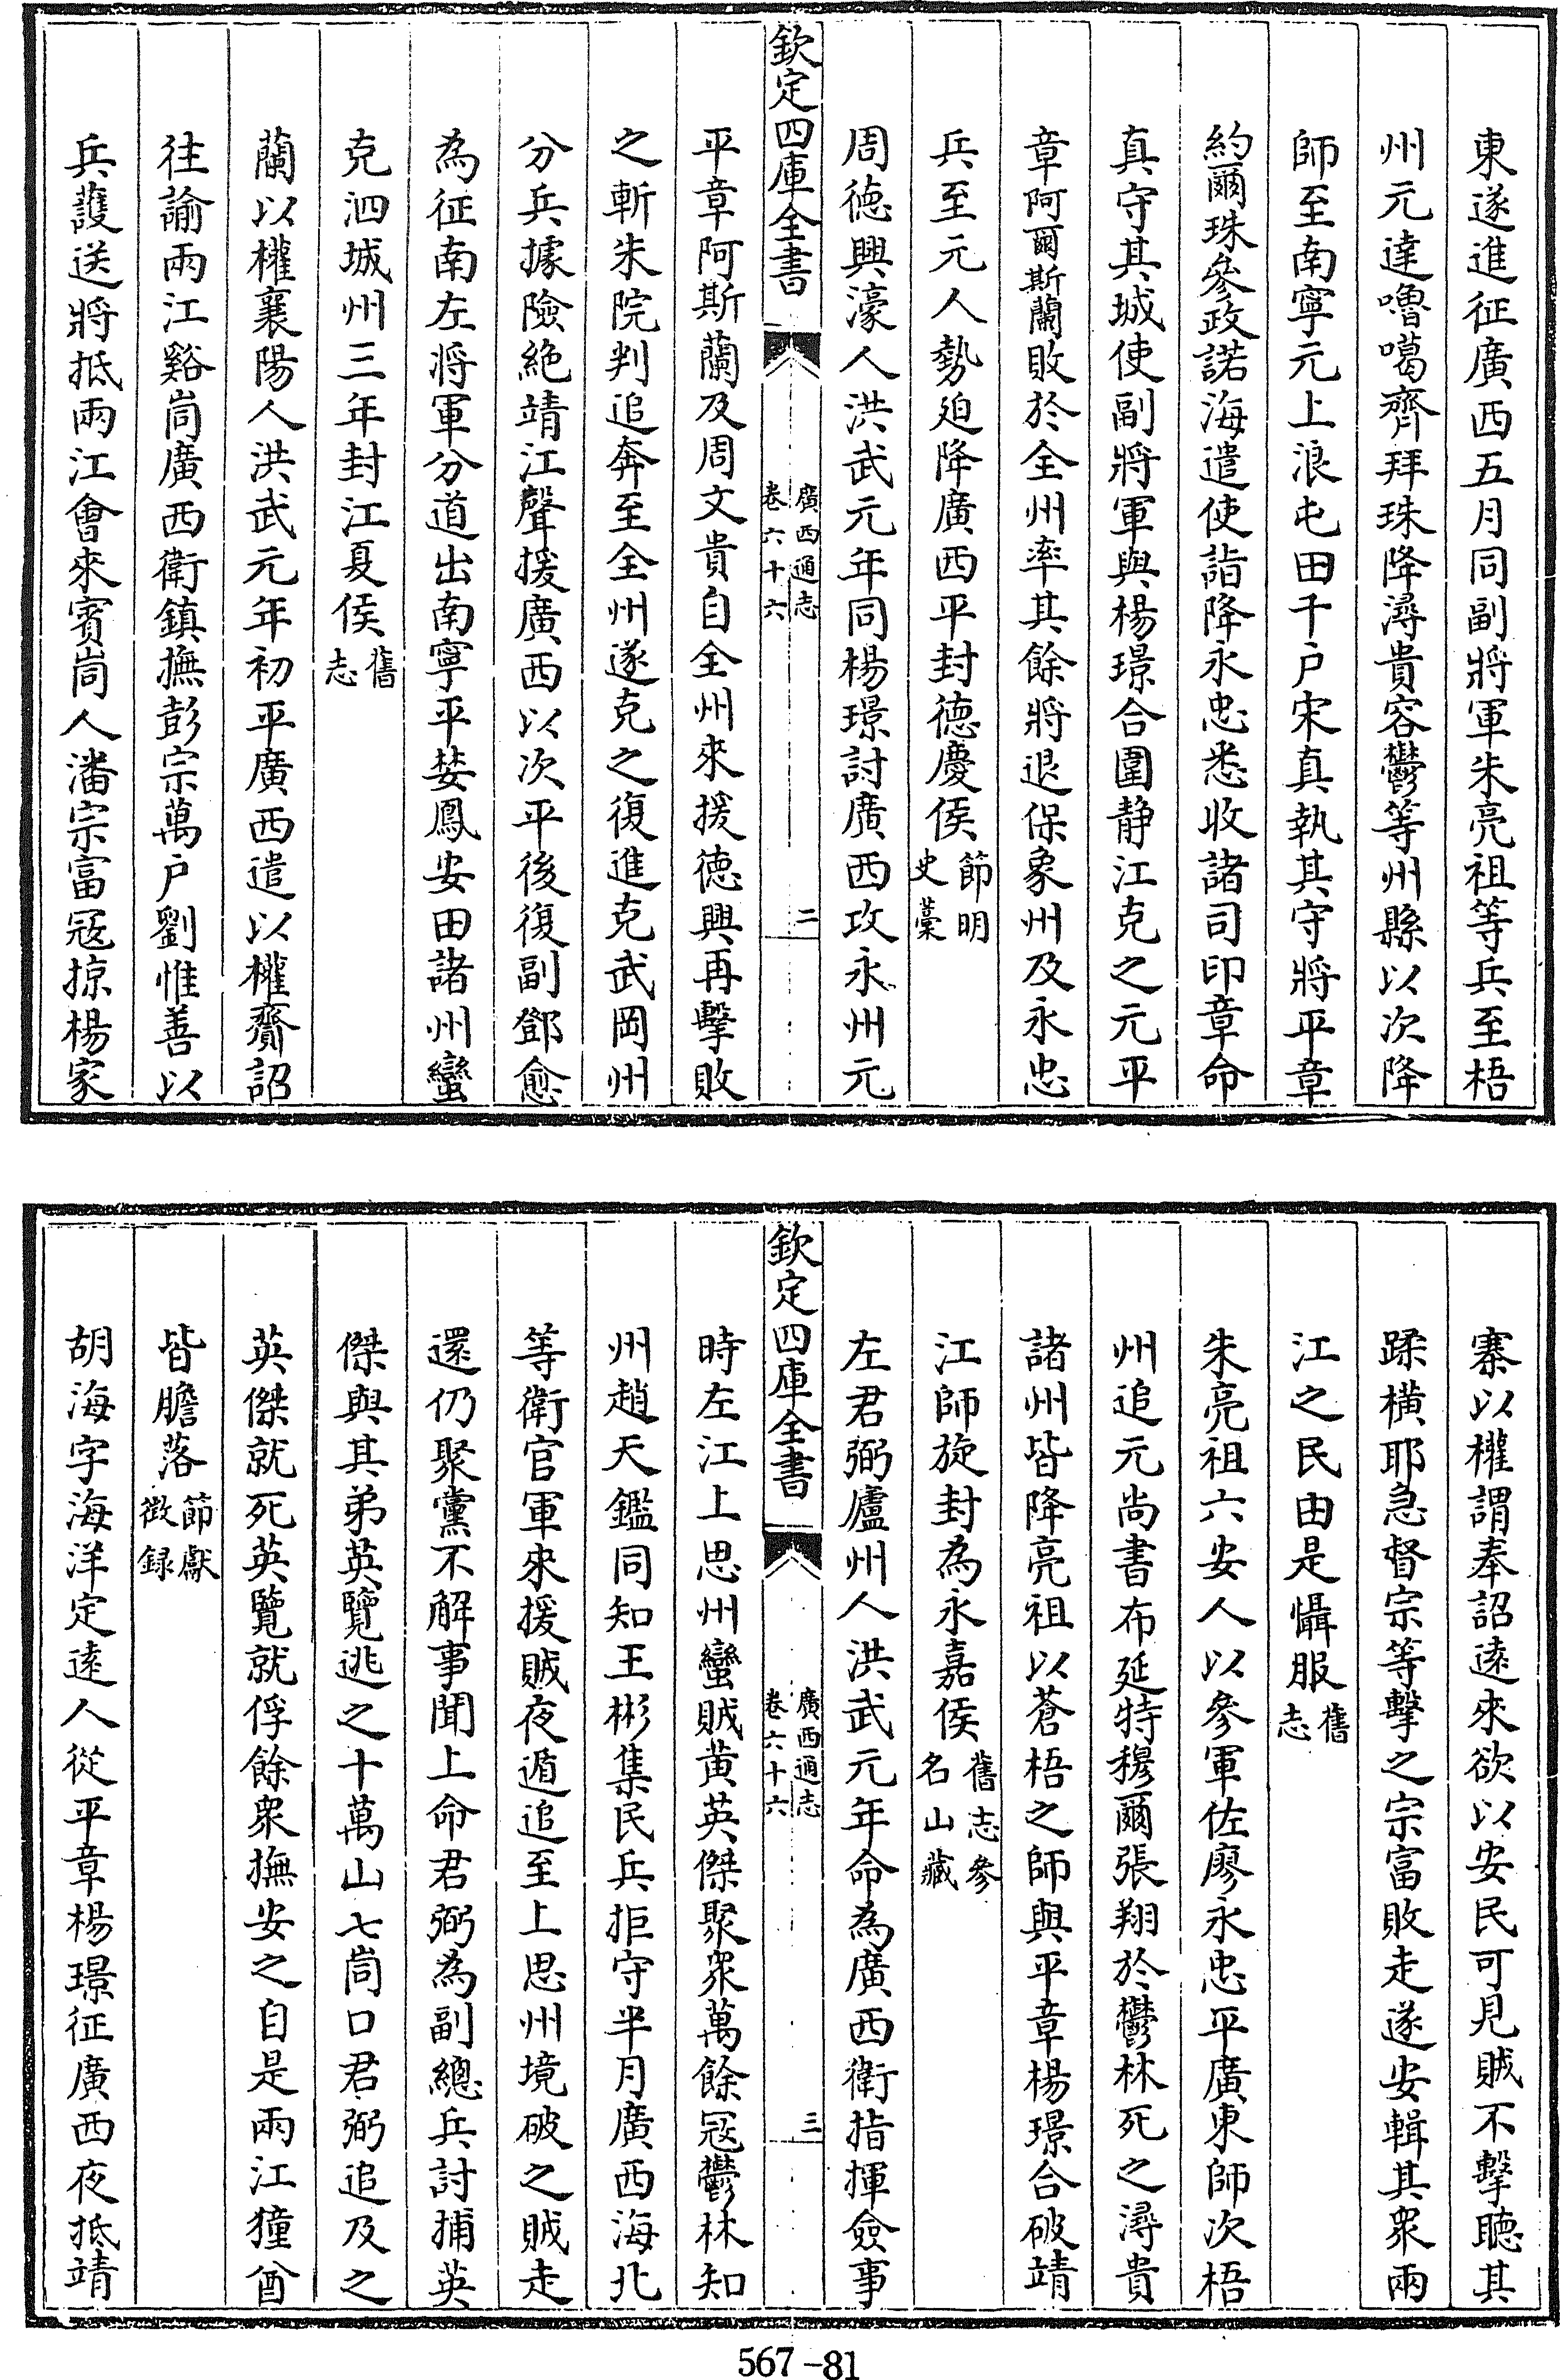 東遂進征廣西五月同副將軍朱亮祖等兵至梧
州元達嚕噶齊拜珠降潯貴容鬱等州縣以次降
師至南寧元上浪屯田千户宋真執其守將平章
約爾珠參政諾海遣使詣降永忠悉收諸司印章命
真守其城使副將軍與楊璟合圍静江克之元平
章阿爾斯蘭敗於全州率其餘將退保象州及永忠
兵至元人勢迫降廣西平封德慶侯節明史藁
周德興濠人洪武元年同楊璟討廣西攻永州元
欽定四庫全書 廣西通志卷六十六 二
平章阿斯蘭及周文貴自全州來援德興再擊敗
之斬朱院判追奔至全州遂克之復進克武岡州
分兵據險絶靖江聲援廣西以次平後復副鄧愈
為征南左將軍分道出南寧平婪鳳安田諸州蠻
克泗城州三年封江夏侯舊志
蘭以權襄陽人洪武元年初平廣西遣以權齎詔
往諭兩江谿峝廣西衛鎮撫彭宗萬户劉惟善以
兵護送將抵兩江會來賓峝人潘宗富寇掠楊家
寨以權謂奉詔遠來欲以安民可見賊不擊聽其
蹂橫耶急督宗等擊之宗富敗走遂安輯其衆兩
江之民由是懾服舊志
朱亮祖六安人以參軍佐廖永忠平廣東師次梧
州追元尚書布延特穆爾張翔於鬱林死之潯貴
諸州皆降亮祖以蒼梧之師與平章楊璟合破靖
江師旋封為永嘉侯舊志參名山藏
左君弼廬州人洪武元年命為廣西衛指揮僉事
欽定四庫全書 廣西通志卷六十六 三
時左江上思州蠻賊黄英傑聚衆萬餘寇鬱林知
州趙天鑑同知王彬集民兵拒守半月廣西海北
等衛官軍來援賊夜遁追至上思州境破之賊走
還仍聚黨不解事聞上命君弼為副總兵討捕英
傑與其弟英覽逃之十萬山七峝口君弼追及之
英傑就死英覽就俘餘衆撫安之自是兩江獞酋
皆膽落節獻徵録
胡海字海洋定遠人從平章楊璟征廣西夜抵靖
567-81